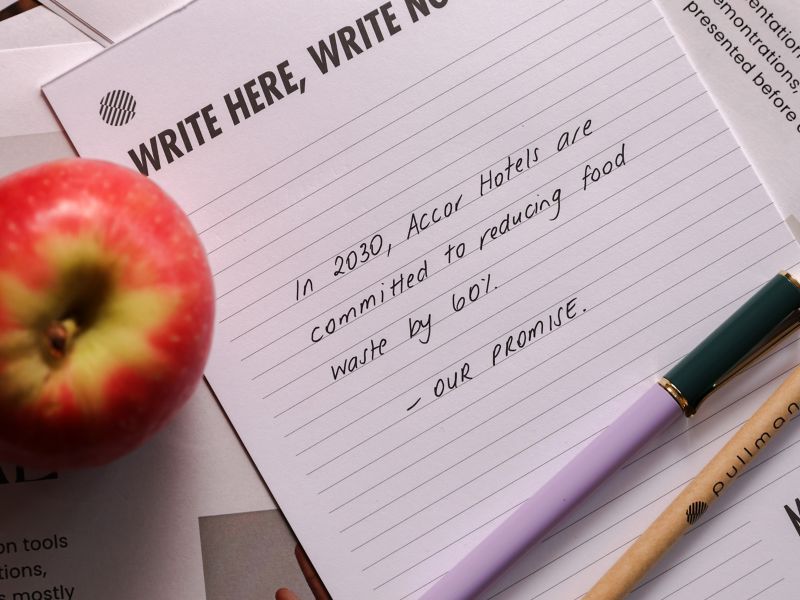 WRITE HERE, WRITE NO
In 2030, Accor Hotels are
committed to reducing food
waste by 60%.
– OUR PROMISE.
pullman
emontrations,
presented before
on tools
tions,
s mostly